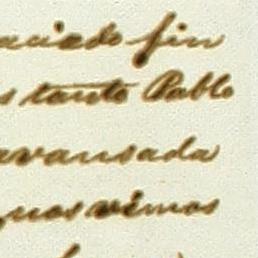 aciado fin
s tanto Pablo
avansada
nos vimos